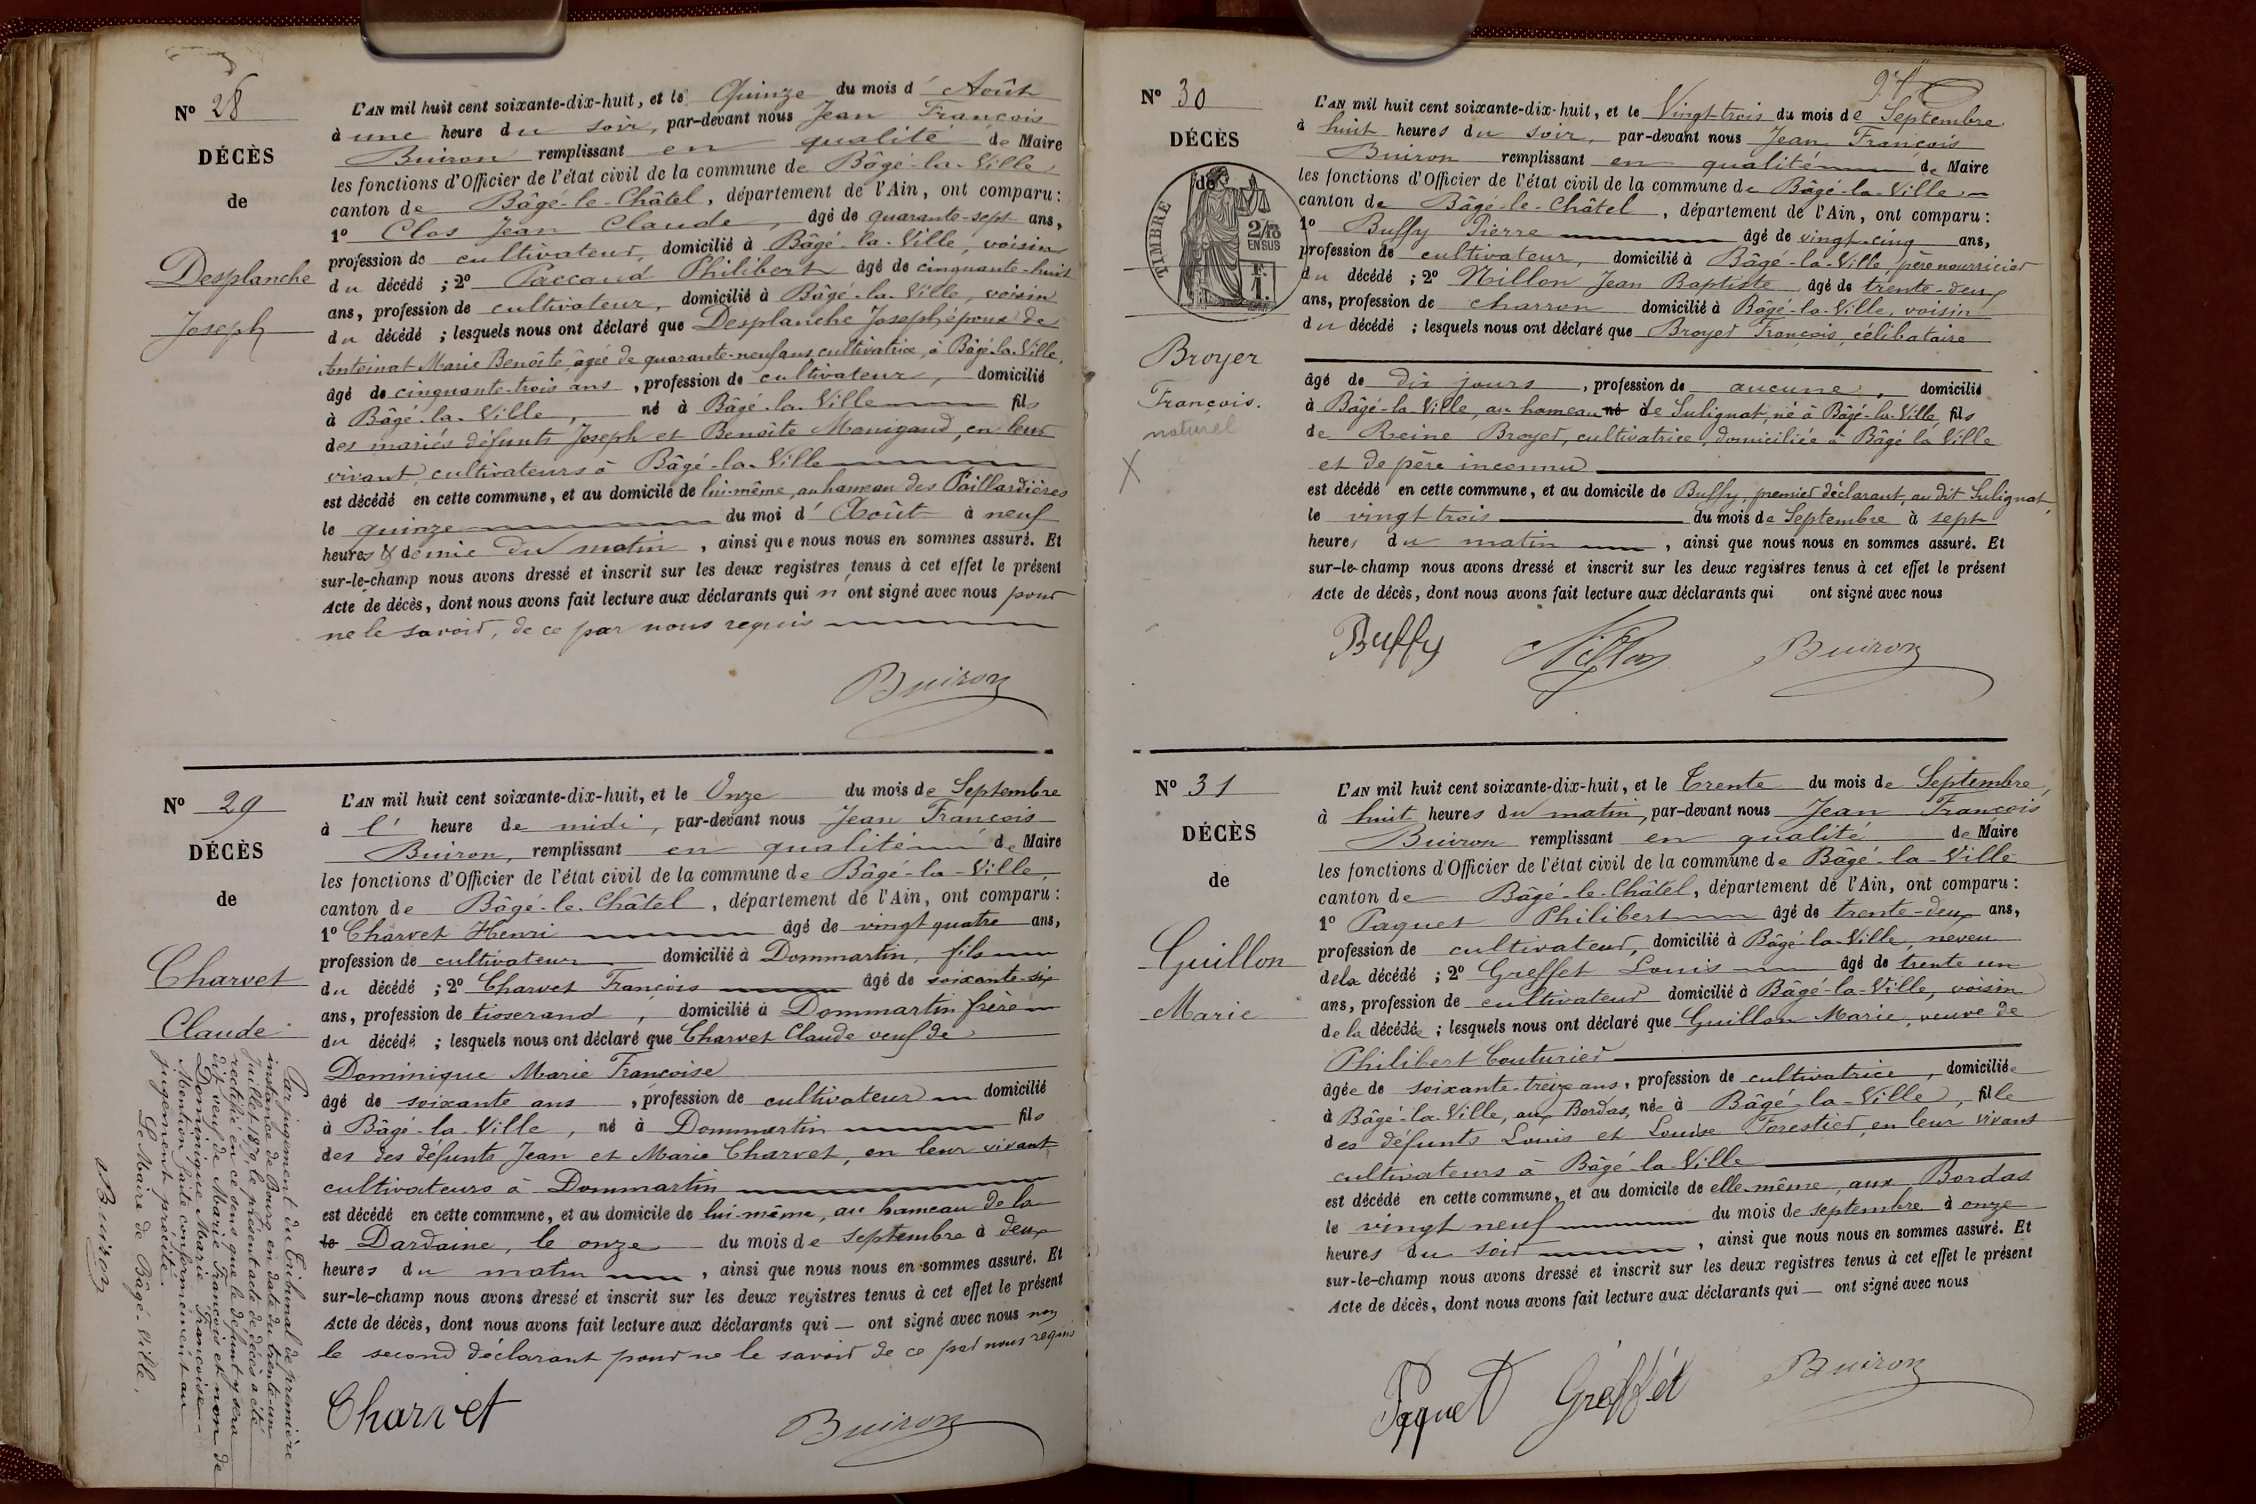 N° 28
DÉCÈS
de
Desplanche
Joseph
L'AN mil huit cent soixante-dix-huit, et le Quinze du mois d' Août
à une heure du soir, par-devant nous Jean François
Buiron remplissant en qualité de Maire
les fonctions d'Officier de l'état civil de la commune de Bâgé-la-Ville,
canton de Bâgé-le-Châtel, département de l'Ain, ont comparu :
1° Clos Jean Claude, âgé de quarante-sept ans,
profession de cultivateur, domicilié à Bâgé-la-Ville, voisin
du décédé ; 2° Paccaud Philibert âgé de cinquante-huit
ans, profession de cultivateur, domicilié à Bâgé-la-Ville, voisin
du décédé ; lesquels nous ont déclaré que Desplanche Joseph, époux de
Antoinat Marie Benôite, âgée de quarante-neuf ans, cultivatrice, à Bâgé-la-Ville,
âgé de cinquante-trois ans, profession de cultivateur, domicilié
à Bâgé-la-Ville, né à Bâgé-la-Ville fils
des mariés défunts Joseph et Benôite Manigand, en leur
vivant, cultivateurs à Bâgé-la-Ville
est décédé en cette commune, et au domicile de lui-même, au hameau des Paillardières
le quinze du moi d' Août à neuf
heures & demie du matin, ainsi que nous nous en sommes assuré. Et
sur-le-champ nous avons dressé et inscrit sur les deux registres tenus à cet effet le présent
Acte de décès, dont nous avons fait lecture aux déclarants qui n'ont signé avec nous pour
ne le savoir, de ce par nous requis
Buiron
N° 29
DÉCÈS
de
Charvet
Claude
Par jugement du Tribunal de première
instance de Bourg, en date du trente-un
Juillet 1879, le présent acte de décès a été
rectifié en ce sens que le défunt y sera
dit veuf de Marie François et non de
Dominique Marie Françoise.-
Mention faite conformément au
jugement précité.
Le Maire de Bâgé-la-Ville,
Buiron
L'AN mil huit cent soixante-dix-huit, et le Onze du mois de Septembre
à l' heure de midi, par-devant nous Jean François
Buiron, remplissant en qualité de Maire
les fonctions d'Officier de l'état civil de la commune de Bâgé-la-Ville,
canton de Bâgé-le-Châtel, département de l'Ain, ont comparu :
1° Charvet Henri âgé de vingt quatre ans,
profession de cultivateur domicilié à Dommartin, fils
du décédé ; 2° Charvet François âgé de soixante-six
ans, profession de tisserand, domicilié à Dommartin frère
du décédé ; lesquels nous ont déclaré que Charvet Claude veuf de
Dominique Marie Françoise
âgé de soixante ans, profession de cultivateur domicilié
à Bâgé-la-Ville, né à Dommartin fils
des des défunts Jean et Marie Charvet, en leur vivant
cultivateurs à Dommartin
est décédé en cette commune, et au domicile de lui-même, au hameau de la
le Dardaine, le onze du mois de septembre à deux
heures du matin, ainsi que nous nous en sommes assuré. Et
sur-le-champ nous avons dressé et inscrit sur les deux registres tenus à cet effet le présent
Acte de décès, dont nous avons fait lecture aux déclarants qui ont signé avec nous non
le second déclarant pour ne le savoir de ce par nous requis
Charvet
Buiron
N° 30
DÉCÈS
de
TIMBRE
2/10
EN SUS
Broyer
François.
naturel
X
L'AN mil huit cent soixante-dix-huit, et le Vingt-trois du mois de Septembre
à huit heures du soir, par-devant nous Jean François
Buiron remplissant en qualité de Maire
les fonctions d'Officier de l'état civil de la commune de Bâgé-la-Ville
canton de Bâgé-le-Châtel, département de l'Ain, ont comparu :
1° Buffy Pierre âgé de vingt-cinq ans,
profession de cultivateur, domicilié à Bâgé-la-Ville, père nourricier
du décédé ; 2° Nillon Jean Baptiste âgé de trente-deux
ans, profession de charron domicilié à Bâgé-la-Ville, voisin
du décédé ; lesquels nous ont déclaré que Broyer François, célibataire
âgé de dix jours, profession de aucune, domicilié
à Bâgé-la-Ville, au hameau né de Sulignat, né à Bâgé-la-Ville, fils
de Reine Broyer, cultivatrice, domiciliée à Bâgé la Ville
et de père inconnu
est décédé en cette commune, et au domicile de Buffy, premier déclarant, au dit Sulignat,
le vingt trois du mois de Septembre à sept
heures du matin, ainsi que nous nous en sommes assuré. Et
sur-le-champ nous avons dressé et inscrit sur les deux registres tenus à cet effet le présent
Acte de décès, dont nous avons fait lecture aux déclarants qui ont signé avec nous
Buffy Nillon Buiron
N° 31
DÉCÈS
de
Guillon
Marie
L'AN mil huit cent soixante-dix-huit, et le Trente du mois de Septembre,
à huit heures du matin, par-devant nous Jean François
Buiron remplissant en qualité de Maire
les fonctions d'Officier de l'état civil de la commune de Bâgé-la-Ville
canton de Bâgé-le-Châtel, département de l'Ain, ont comparu :
1° Paquet Philibert âgé de trente-deux ans,
profession de cultivateur, domicilié à Bâgé-la-Ville, neveu
dela décédé ; 2° Greffet Louis âgé de trente un
ans, profession de cultivateur domicilié à Bâgé-la-Ville, voisin
de la décédée ; lesquels nous ont déclaré que Guillon Marie, veuve de
Philibert Couturier
âgée de soixante-treize ans, profession de cultivatrice, domiciliée
à Bâgé-la-Ville, aux Bordas, née à Bâgé-la-Ville, fille
des défunts Louis et Louise Forestier, en leur vivant
cultivateurs à Bâgé-la-Ville
est décédé en cette commune, et au domicile de elle-même, aux Bordas
le vingt neuf du mois de septembre à onze
heures du soir, ainsi que nous nous en sommes assuré. Et
sur-le-champ nous avons dressé et inscrit sur les deux registres tenus à cet effet le présent
Acte de décès, dont nous avons fait lecture aux déclarants qui ont signé avec nous
Paquet Greffet Buiron